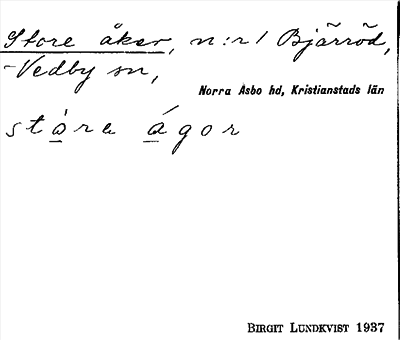 Store åker, n:r 1 Bjärröd,
Vedby sn,
Norra Åsbo hd, Kristianstads län
stạ̊rɐ ágor
BIRGIT LUNDKVIST 1937